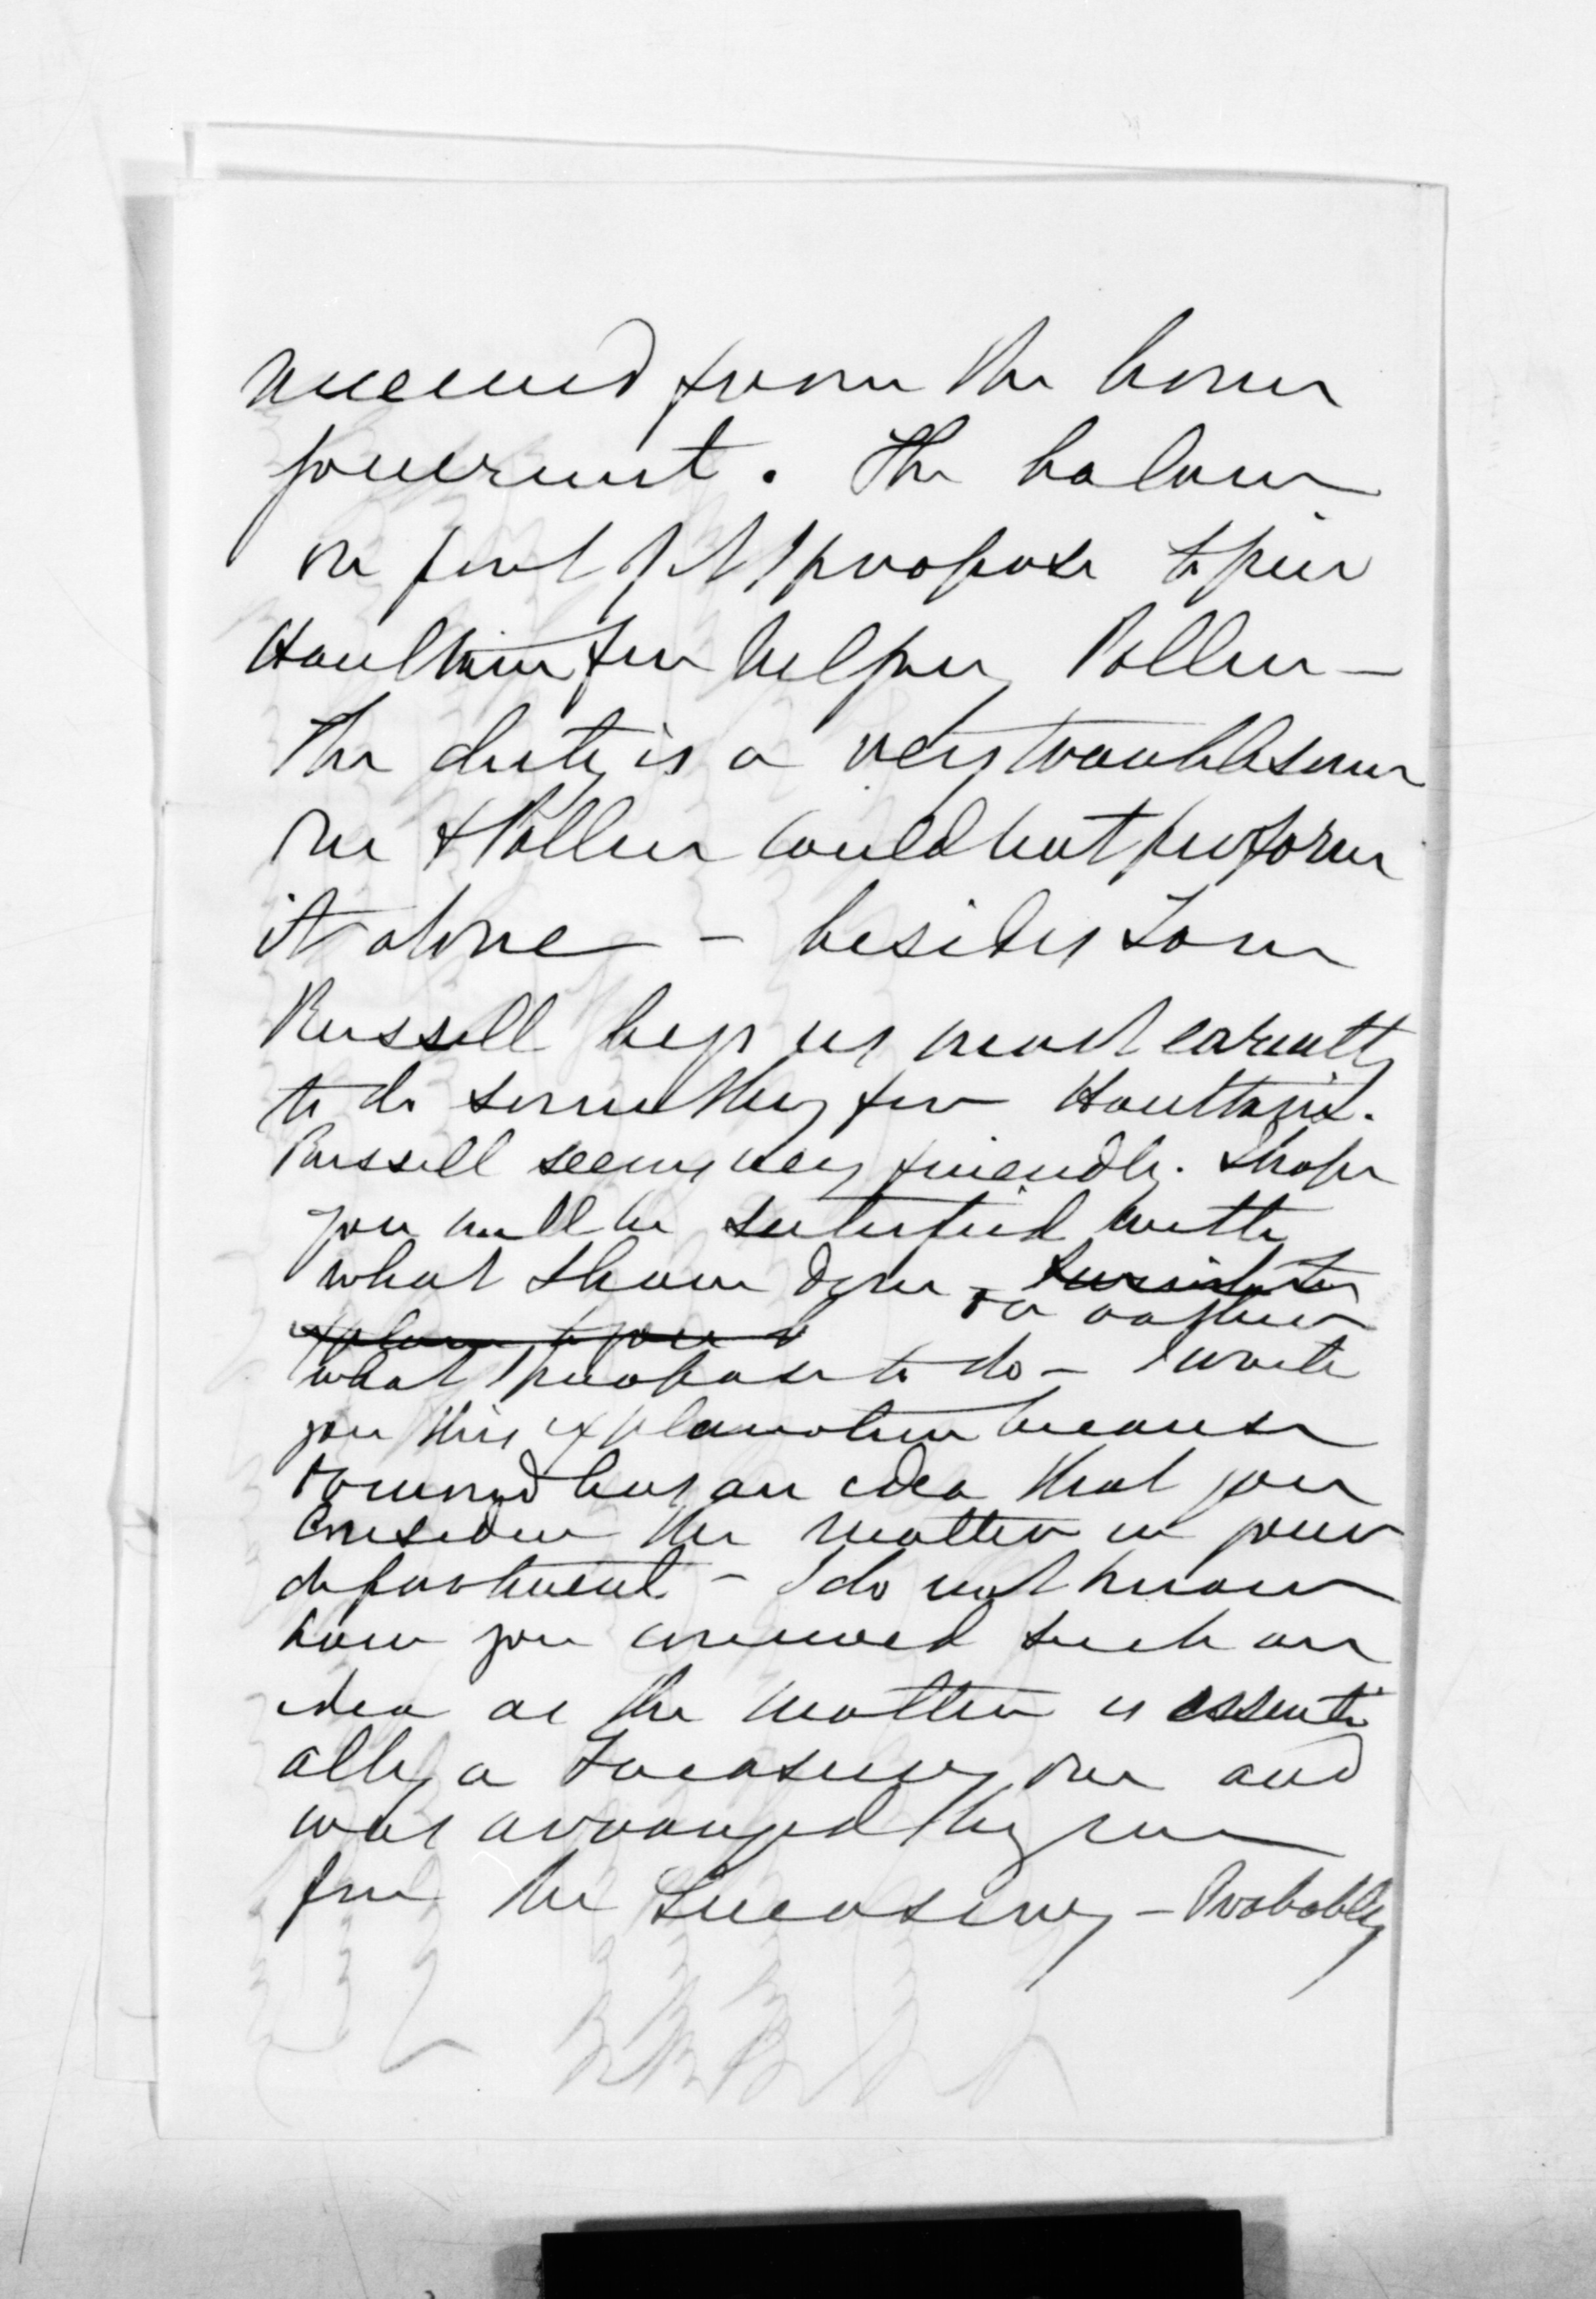 received from the home
government. The balance
one I propose to give
Haultain for helping Pollen —
The duty is a very troublesome
one & Pollen could not perform
it alone — besides Tom
Russell begs us most earnestly
to do something for Haultain.
Russell seems very friendly. I hope
you will be satisfied with
what I have done — or rather
explain to you
what I propose to do — I write
you this explanation because
has an idea that you
consider the matter in your
department — I do not know
how you conceived such an
idea as the matter is essenti
ally a Treasury one and
was arranged by me
for the Treasury — Probably